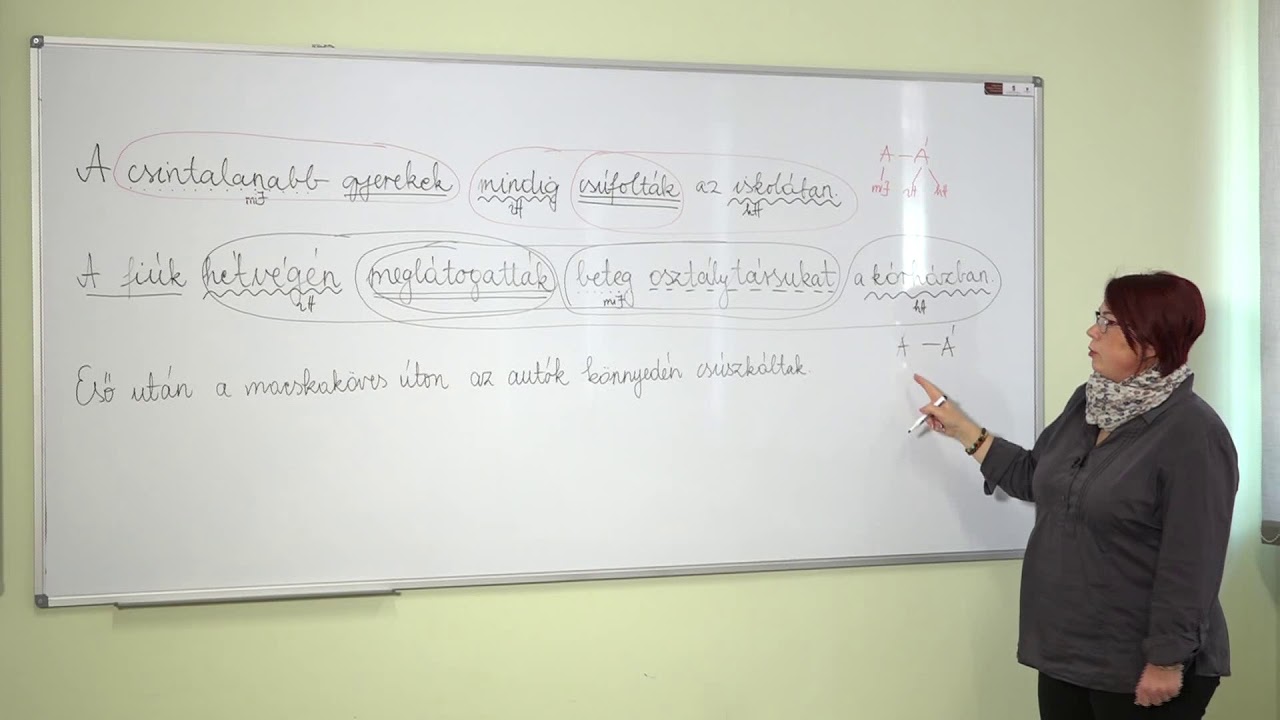 A csintalanabb gyerekek mindig csúfolták az iskolában.
mJ iH hH
A — Á
mJ iH hH
A fiúk hétvégén meglátogatták beteg osztálytársukat a kórházban.
iH mJ hH
A — Á
Eső után a macskaköves úton az autók könnyedén csúszkáltak.